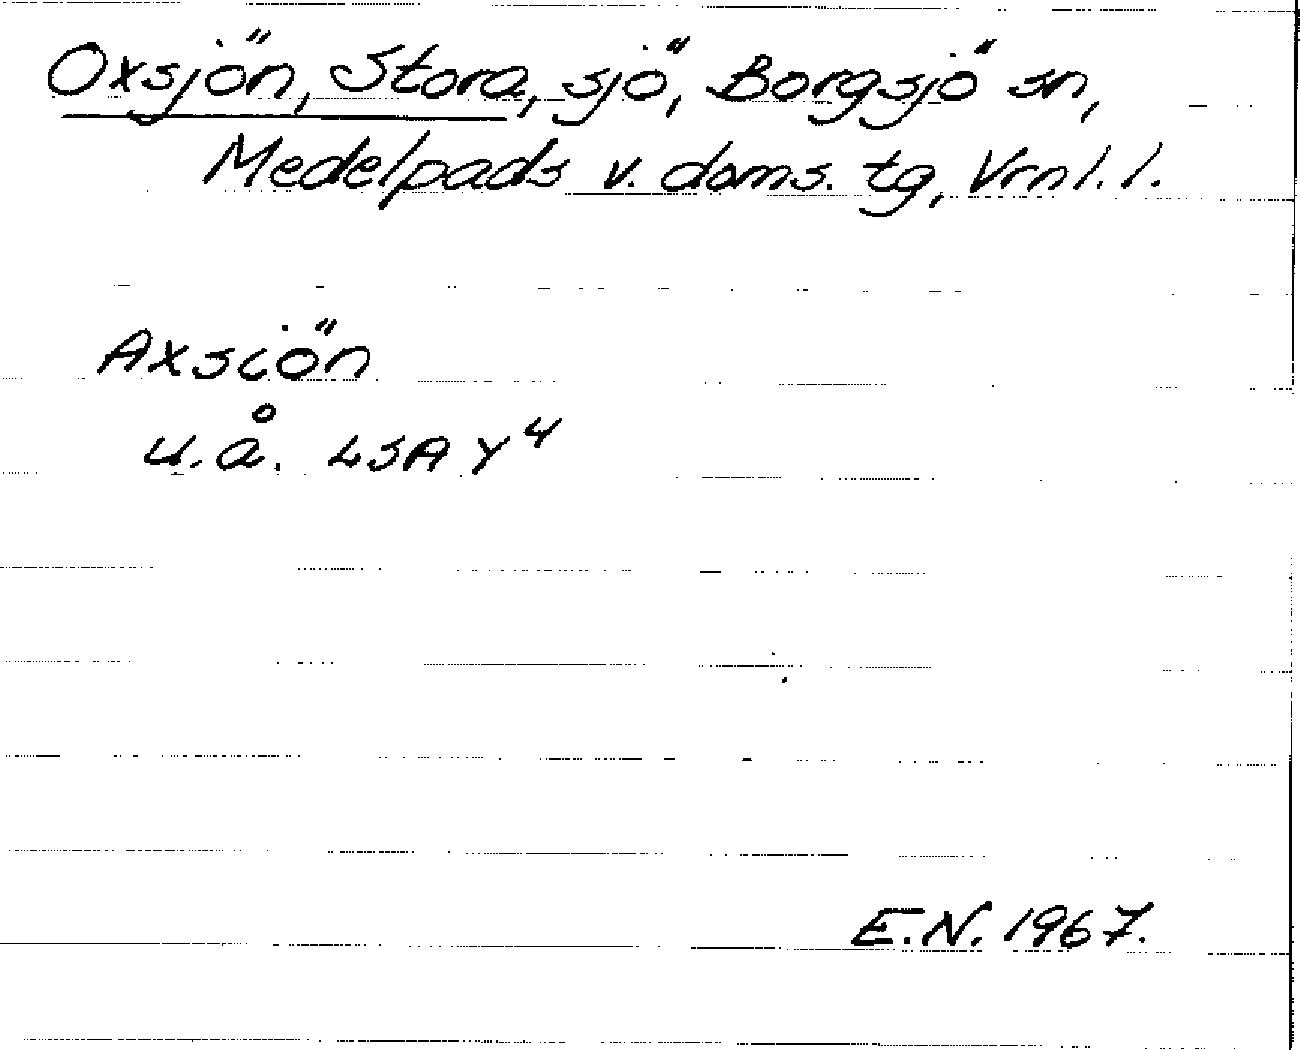 Oxsjön, Stora, sjö, Borgsjö sn,
Medelpads v. doms. tg, Vrnl. l.
Axsiön
u.å. LSA Y4
E.N. 1967.